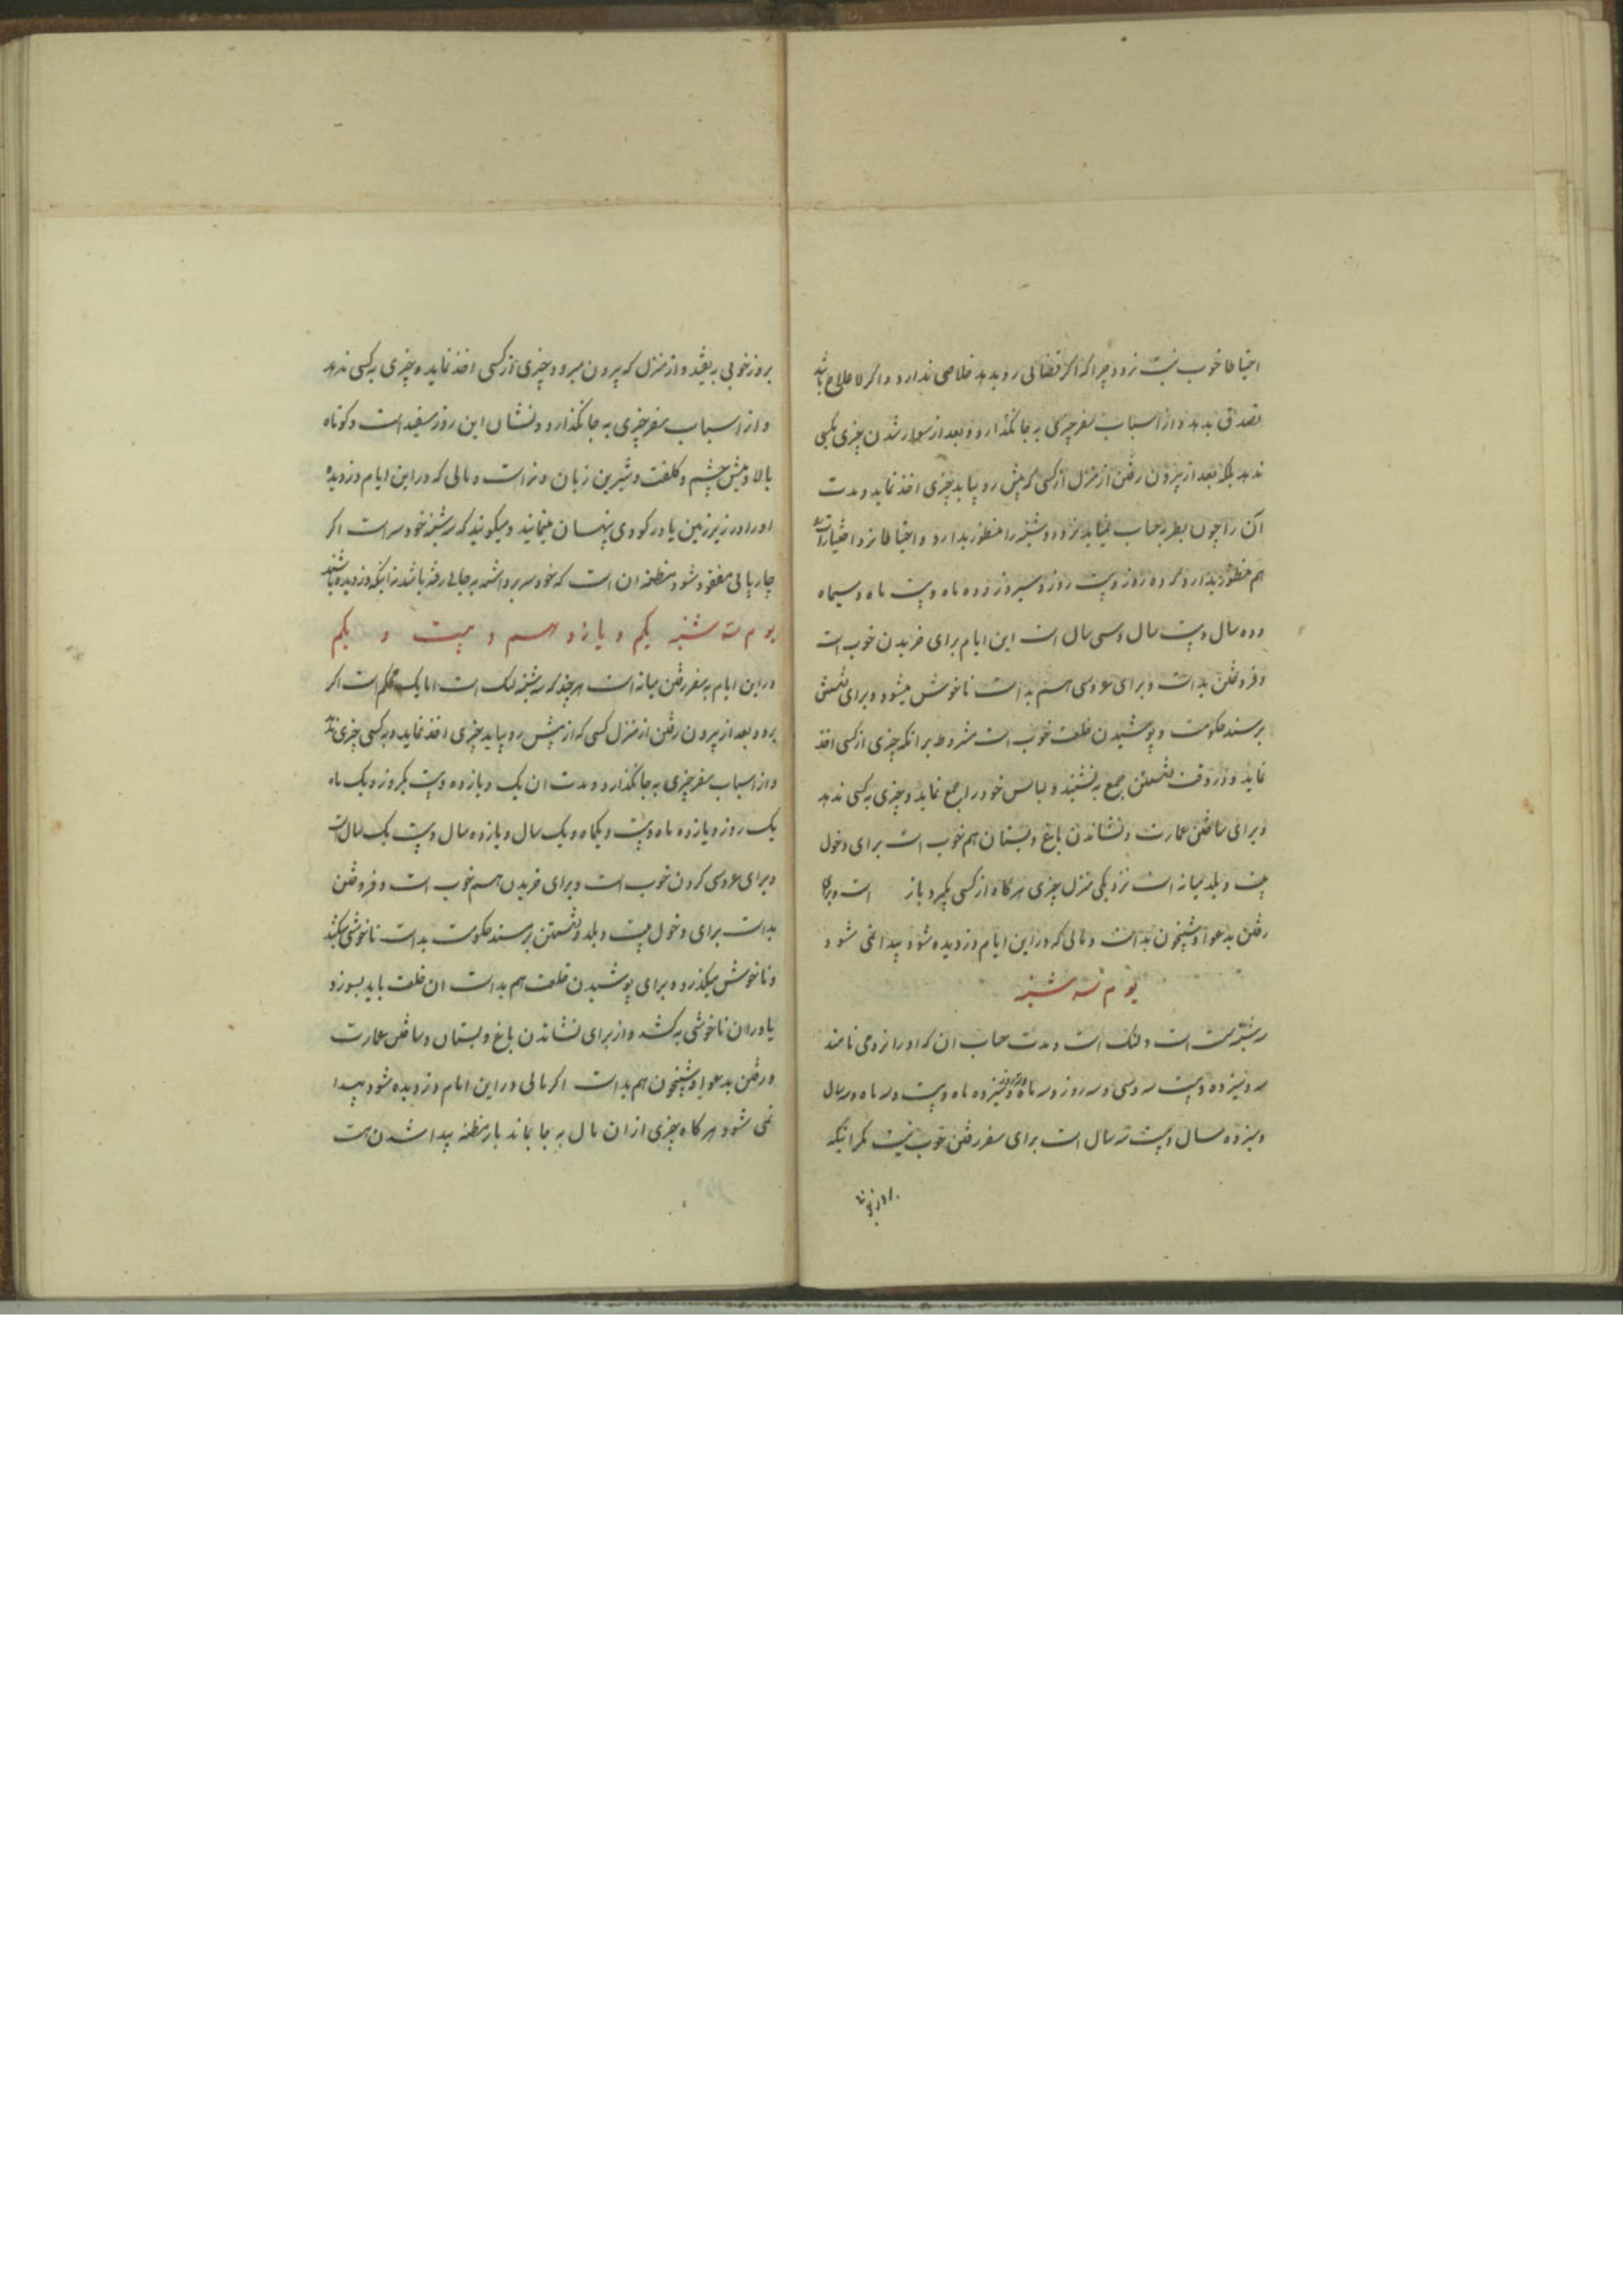 احتیاطا خوب نیست نرود چراکه اگر قضائی رو بدهد خلاصی ندارد و اگر لاعلاج باشد
تصدق بدهد و از اسباب سفر چیزی به جا نگذارد و بعد از سوار شدن چیزی بکسی
ندهد بلکه بعد از بیرون رفتن از منزل از کسی که پیش رو بیاید چیزی اخذ نماید و مدت
آن را چون بطریق حساب نماید نرود و دوشنبه را منظور بدارد و احتیاطا نرود اختیارات
هم منظور بدارد که ده روز و بیست روز و سی روز و ده ماه و بیست ماه و سیماه
و ده سال و بیست سال و سی سال است این ایام برای خریدن خوب است
و فروختن بد است و برای عروسی هم بد است ناخوش میشود و برای نشستن
بر مسند حکومت و پوشیدن خلعت خوب است مشروط بر آنکه چیزی از کسی اخذ
نماید و در وقت نشستن جمع به نشیند و لباس خود را جمع نماید و چیزی به کسی ندهد
و برای ساختن عمارت و نشاندن باغ و بستان هم خوب است برای دخول
بیت و بلد میانه است نزدیکی منزل چیزی هرگاه از کسی بگیرد باز است و برای
رفتن بدعوا و شبخون بد است و مالی که در این ایام دزدیده شود پیدا نمی شود
یوم سه شنبه
سه شنبه است و لنگ است و مدت حساب ان که او را نردحی نامند
سه و سیزده و بیست سه و سی و سه روز و سه ماه و سیزده ماه و بیست و سه ماه و سه سال
و سیزده سال و بیست سه سال است برای سفر رفتن خوب نیست مگر انکه
بروز خوبی به یفتد و از منزل که بیرون میرود چیزی از کسی اخذ نماید و چیزی به کسی ندهد
و از اسباب سفر چیزی به جا نگذارد و نشان این روز سفید است و کوتاه
بالا و میش چشم و کلفت و شیرین زبان و نر است و مالی که در این ایام دزدیده
او را در زیر زمین یا در کودی پنهان مینمایند و میکویند که سه شنبه خودسر است اکر
چارپائی مفقود شود مظنه ان است که خودسر برداشته به جائی رفته باشد نه اینکه دزدیده باشند
یوم سه شنبه یکم و یازدهم و بیست و یکم
در این ایام به سفر رفتن میانه است هر چند که سه شنبه لنک است اما یک محکم است اکر
برود بعد از بیرون رفتن از منزل کسی که از پیش رو بیاید چیزی اخذ نماید و به کسی چیزی ندهد
و از اسباب سفر چیزی به جا نگذارد و مدت ان یک و یازده و بیست یکروز و یک ماه
یک روز و یازده ماه و بیست و یکماه و یک سال و یازده سال و بیست یک سال است
و برای عروسی کردن خوب است و برای خریدن هم خوب است و فروختن
بد است برای دخول بیت و بلد و نشستن بر مسند حکومت بد است ناخوشی میکشد
و ناخوش میکذرد و برای پوشیدن خلعت هم بد است ان خلعت باید بسوزد
یا در ان ناخوشی به کشد و از برای نشاندن باغ و بستان و ساختن عمارت
و رفتن بدعوا و شبخون هم بد است اکر مالی در این ایام دزدیده شود پیدا
نمی شود هر کاه چیزی از ان مال به جا بماند باز مظنه پیدا شدن هست